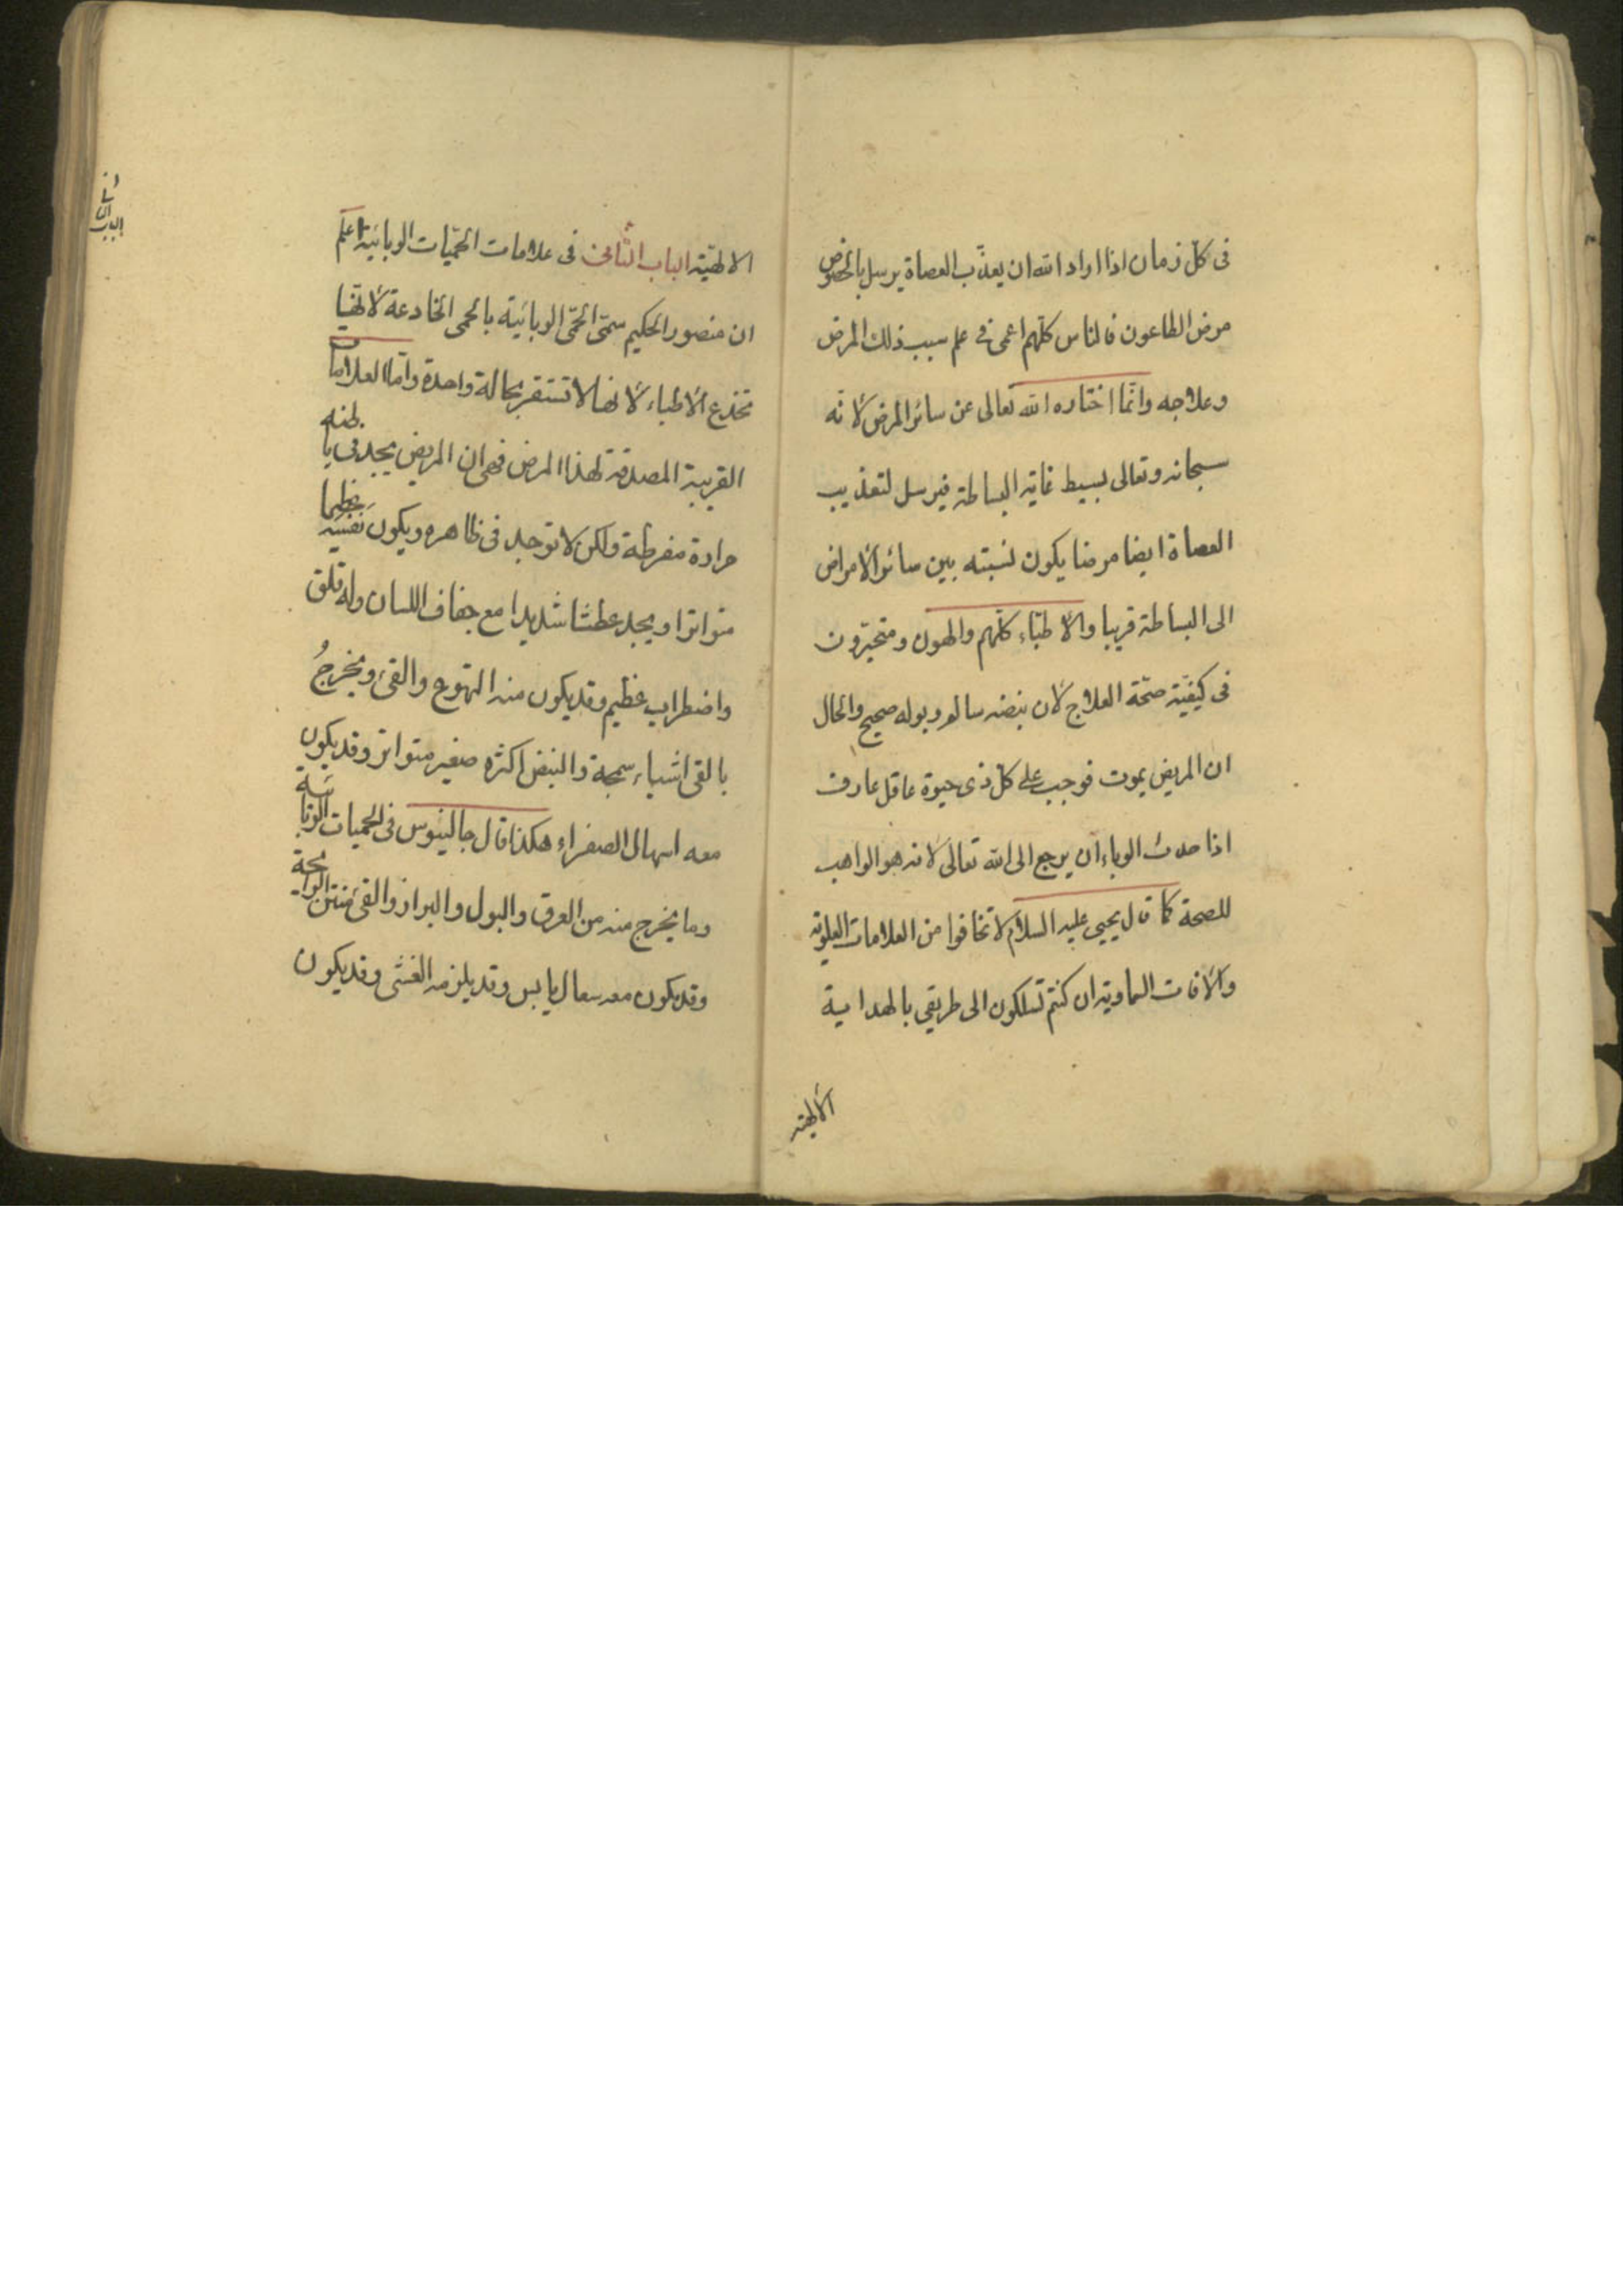 فى كل زمان اذا اراد الله ان يعذب العصاة يرسل بالخصوص
مرض الطاعون فالناس كلهم اعمى فى علم سبب ذلك المرض
وعلاجه وانما اختاره الله تعالى عن سائر المرض لانه
سبحانه وتعالى بسيط غاية البساطة فيرسل لتعذيب
العصاة ايضا مرضا يكون نسبته بين سائر الامراض
الى البساطة قريبا والاطباء كلهم والهون ومتحيرون
فى كيفية صحة العلاج لان نبضه سالم وبوله صحيح والحال
ان المريض يموت فوجب على كل ذى حيوة عاقل عارف
اذا حدث الوباء ان يرجع الى الله تعالى لانه هو الواهب
للصحة كما قال يحيى عليه السلام لا تخافوا من العلامات العلوية
والآفات السماوية ان كنتم تسلكون الى طريقى بالهداية
الالهية
الالهية الباب الثانى فى علامات الحميات الوبائية اعلم
ان منصور الحكيم سمى الحمى الوبائية بالحمى الخادعة لانها
تخدع الاطباء لانها لا تستقر بحالة واحدة واما العلامات
القريبة المصدقة لهذا المرض فهى ان المريض يجد فى باطنه
حرارة مفرطة ولكن لا توجد فى ظاهره ويكون نفسه عظيما
متواترا ويجد عطشا شديدا مع جفاف اللسان وله قلق
واضطراب عظيم وقد يكون منه التهوع والقئ ويخرج
بالقئ اشياء سمجة والنبض اكثره صغير متواتر وقد يكون
معه اسهال الصفراء هكذا قال جالينوس فى الحميات الوبائية
وما يخرج منه من العرق والبول والبراز والقئ منتن الرائحة
وقد يكون معه سعال يابس وقد يلزمه الغشى وقد يكون
الباب الثانى